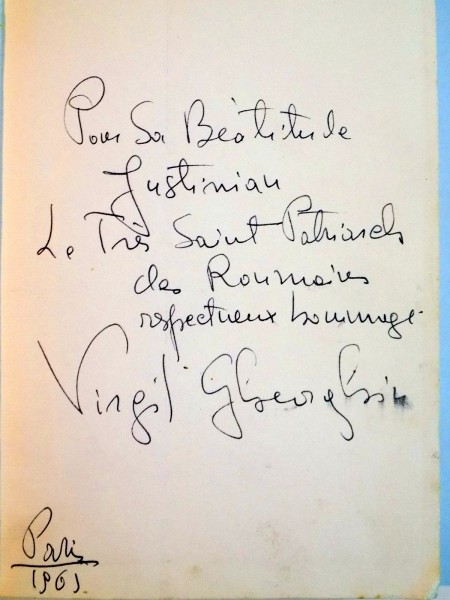 Pour Sa Béatitude
Justinian
Le Très Saint Patriarch
des Roumains
respectueux hommage
Virgil Gheorghiu
Paris